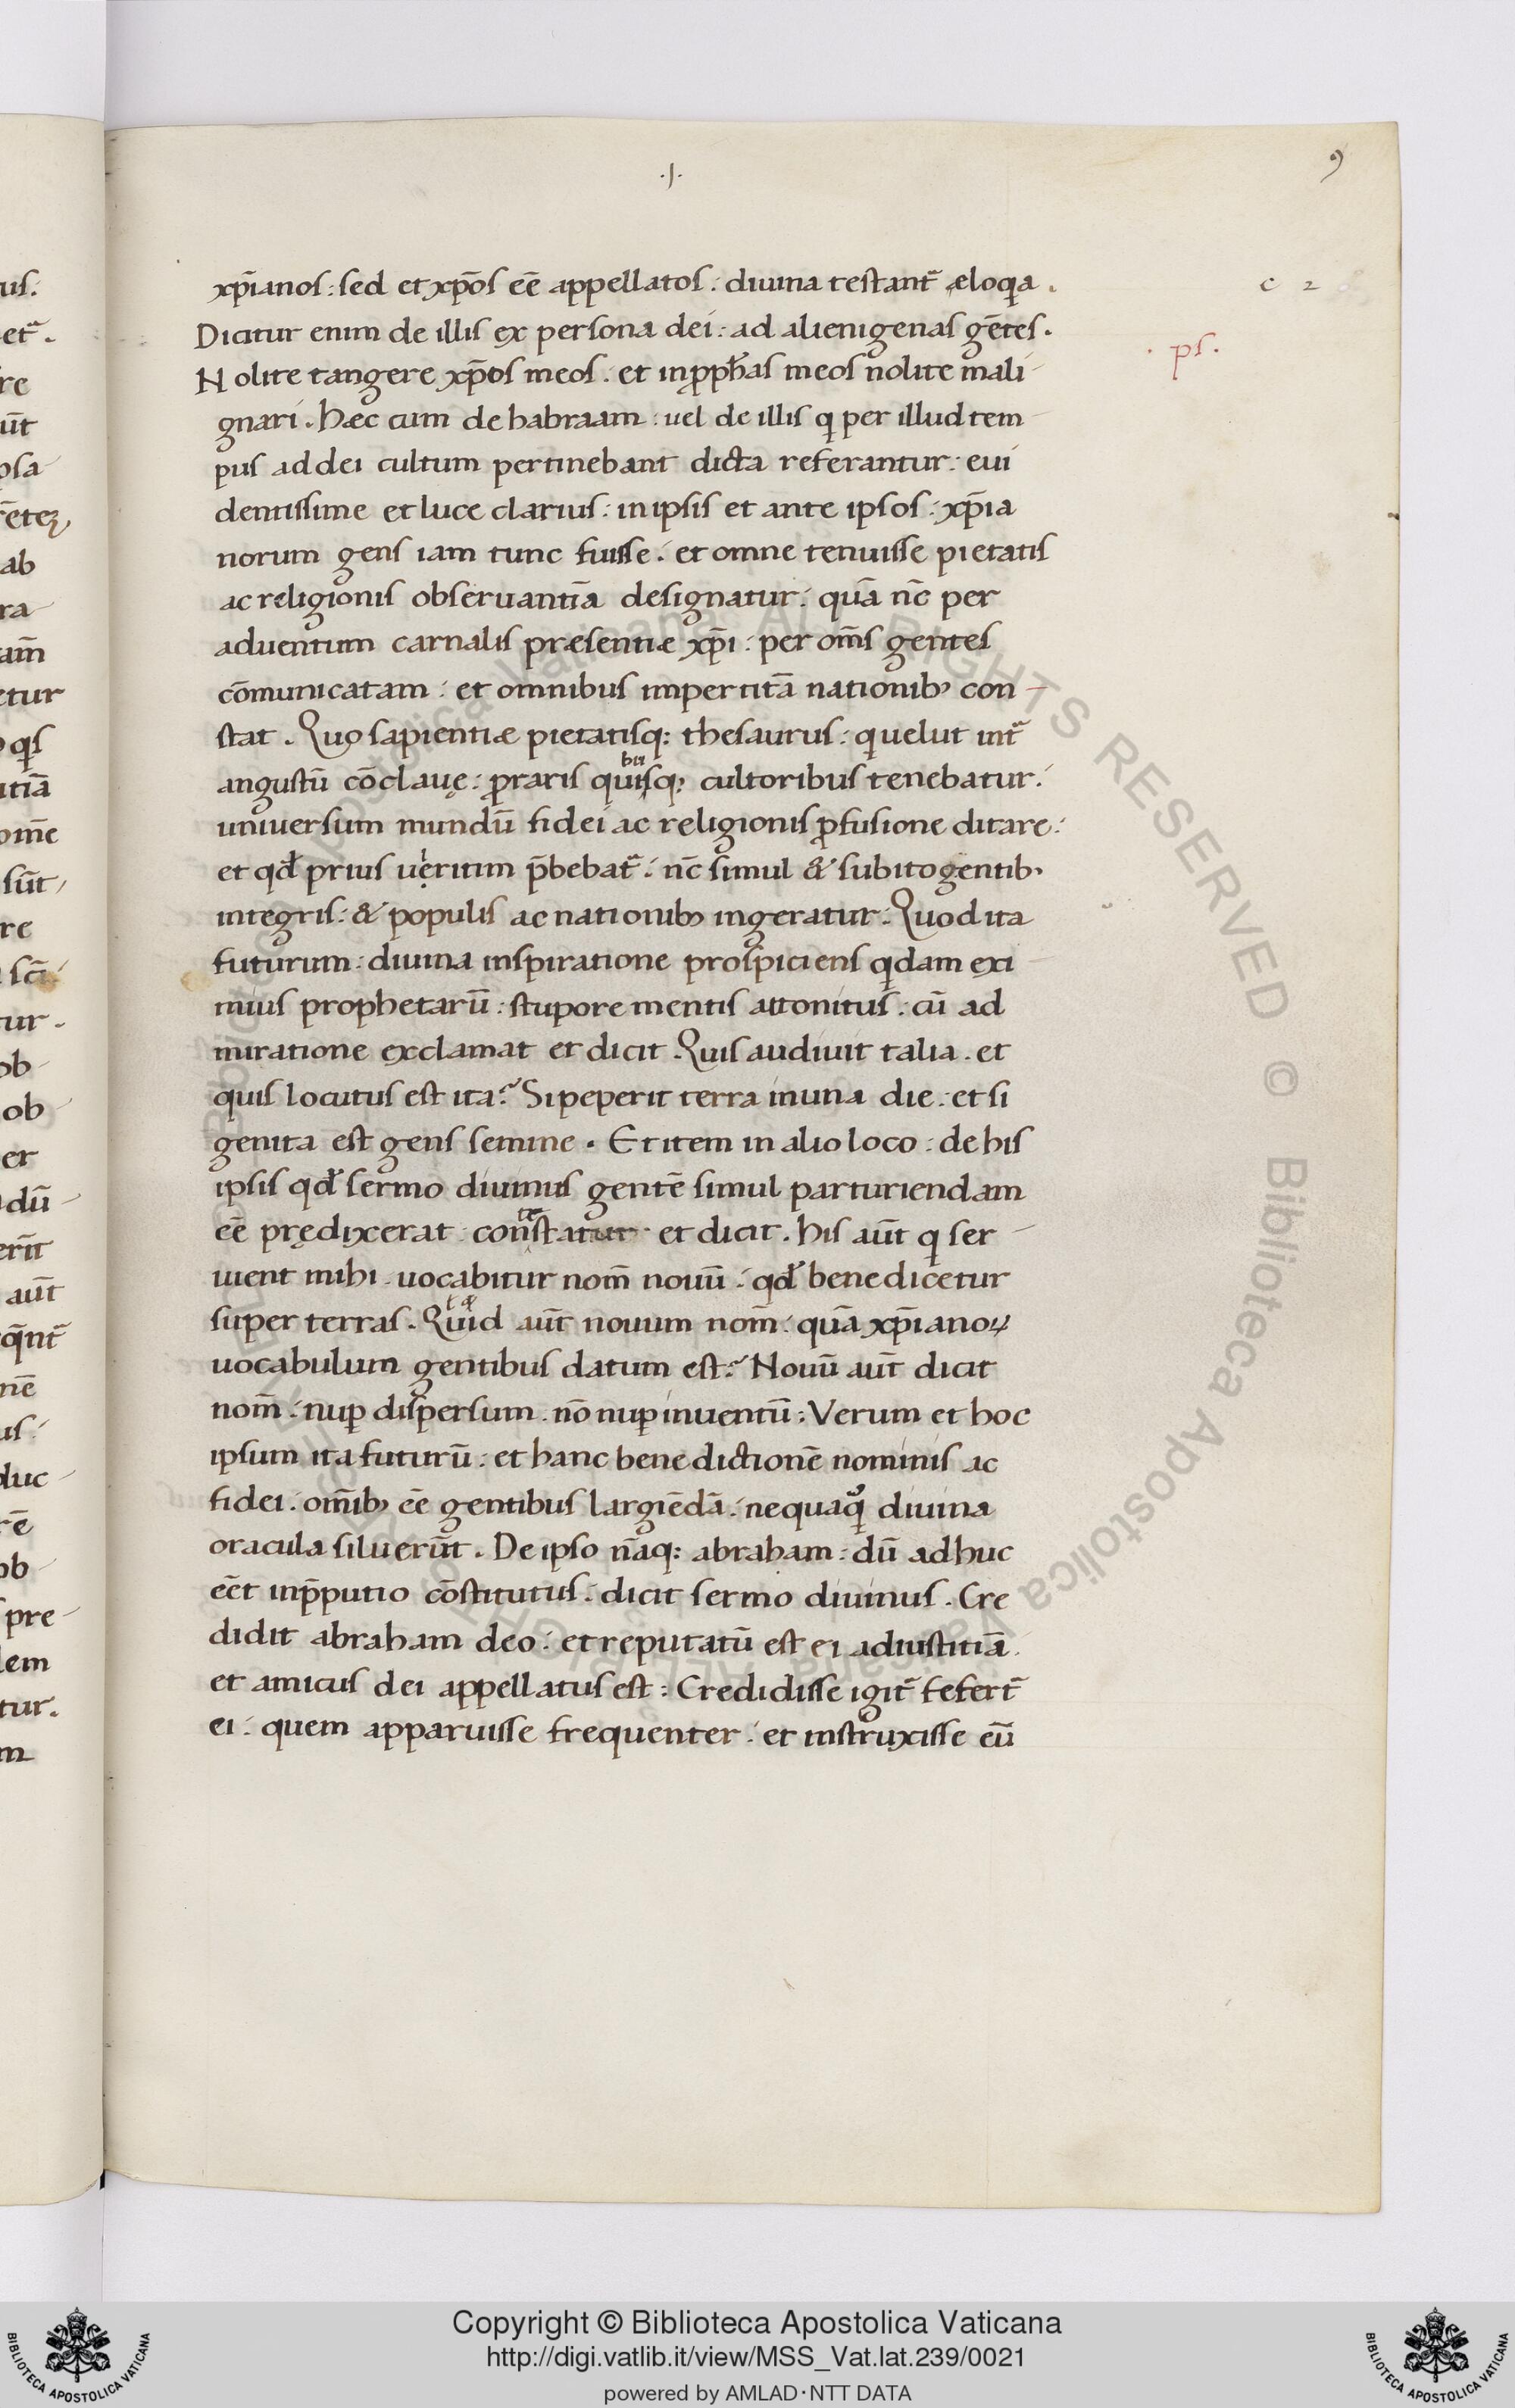 .I.
9
xp̄ianos : sed et xp̄os eē appellatos . diuina testant᷑ æloqia . c 2
Dicitur enim de illis ex persona dei : ad alienigenas gētes . . ps .
Nolite tangere xp̄os meos . et in ꝓph̄as meos nolite mali
gnari . hæc cum de habraam : uel de illis q per illud tem
pus ad dei cultum pertinebant dicta referantur : eui
dentissime et luce clarius : in ipsis et ante ipsos : xp̄ia
norum gens iam tunc fuisse . et omne tenuisse pietatis
ac religionis obseruantiā designatur : quā nc̄ per
aduentum carnalis præsentiæ xp̄i : per om̄s gentes
cōmunicatam : et omnibus impertitā nationibꝰ con
stat . Quo sapientiæ pietatisq: thesaurus : q uelut int᷑
angustū cōclauę : ꝓ raris quisq; cultoribus tenebatur .
bu
uniuersum mundū fidei ac religionis ꝓfusione ditare :
et qd̄ prius ueritim p̄bebat᷑ : nc̄ simul & subito gentibꝰ
integris : & populis ac nationibꝰ ingeratur . Quod ita
futurum : diuina inspiratione prospiciens qdam exi
mius prophetarū : stupore mentis attonitus : cū ad
miratione exclamat et dicit . Quis audiuit talia . et
quis locutus est ita ? Si peperit terra in una die : et si
genita est gens semine . Et item in alio loco : de his
ipsis qd̄ sermo diuinus gentē simul parturiendam
eē prędixerat constatur et dicit . his aūt q ser
te
uient mihi . uocabitur nom̄ nouū : qd̄ benedicetur
super terras . Quid aūt nouum nom̄ : quā xp̄ianoꝝ
uocabulum gentibus datum est ? Nouū aūt dicit
nom̄ : nuꝑ dispersum . nō nuꝑ inuentū : Verum et hoc
ipsum ita futurū : et hanc benedictionē nominis ac
fidei . om̄ibꝰ eē gentibus largiēdā : nequaq̄ diuina
oracula siluerūt . De ipso nāq: abraham : dū adhuc
eēt in p̄putio cōstitutus : dicit sermo diuinus . Cre
didit abraham deo : et reputatū est ei ad iustitiā .
et amicus dei appellatus est : Credidisse igit᷑ fefert᷑
ei : quem apparuisse frequenter : et instruxisse eū
us :
et᷑ .
re
ūt
osa
ab
ra
am̄
etur
qs
utiā
om̄e
sūt
re
sci :
tur .
ob
ob
er
dū
erīt
aūt
nē
us :
duc
rē
ob
pre
lem
tur .
m
© Biblioteca Apostolica Vaticana ALL RIGHTS RESERVED
Copyright © Biblioteca Apostolica Vaticana
http://digi.vatlib.it/view/MSS_Vat.lat.239/0021
powered by AMLAD·NTT DATA
BIBLIOTECA APOSTOLICA VATICANA
BIBLIOTECA APOSTOLICA VATICANA